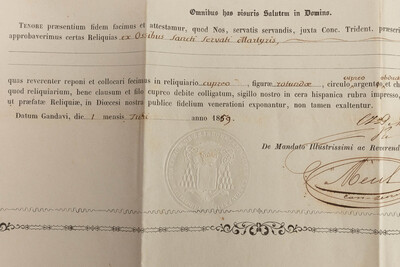 Omnibus has visuris Salutem in Domino.
Tenore præsentium fidem facimus et attestamur, quod Nos, servatis servandis, juxta Conc. Trident. præscri
approbaverimus certas Reliquias ex Ossibus Sancti Servati Martyris,
quas reverenter reponi et collocari fecimus in reliquiario cupreo, figuræ rotundæ, circulo argenteo, et
quod reliquiarium, bene clausum et filo cupreo debite colligatum, sigillo nostro in cera hispanica rubra impresso,
ut præfatæ Reliquiæ, in Diocesi nostra publice fidelium venerationi exponantur, non tamen exaltentur.
Datum Gandavi, die 1 mensis anno 18
De Mandato Illustrissimi ac Reverend